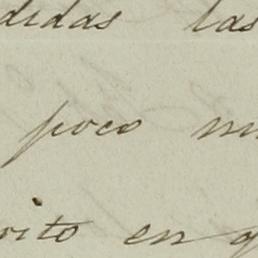 didas las
poco m
rito en q